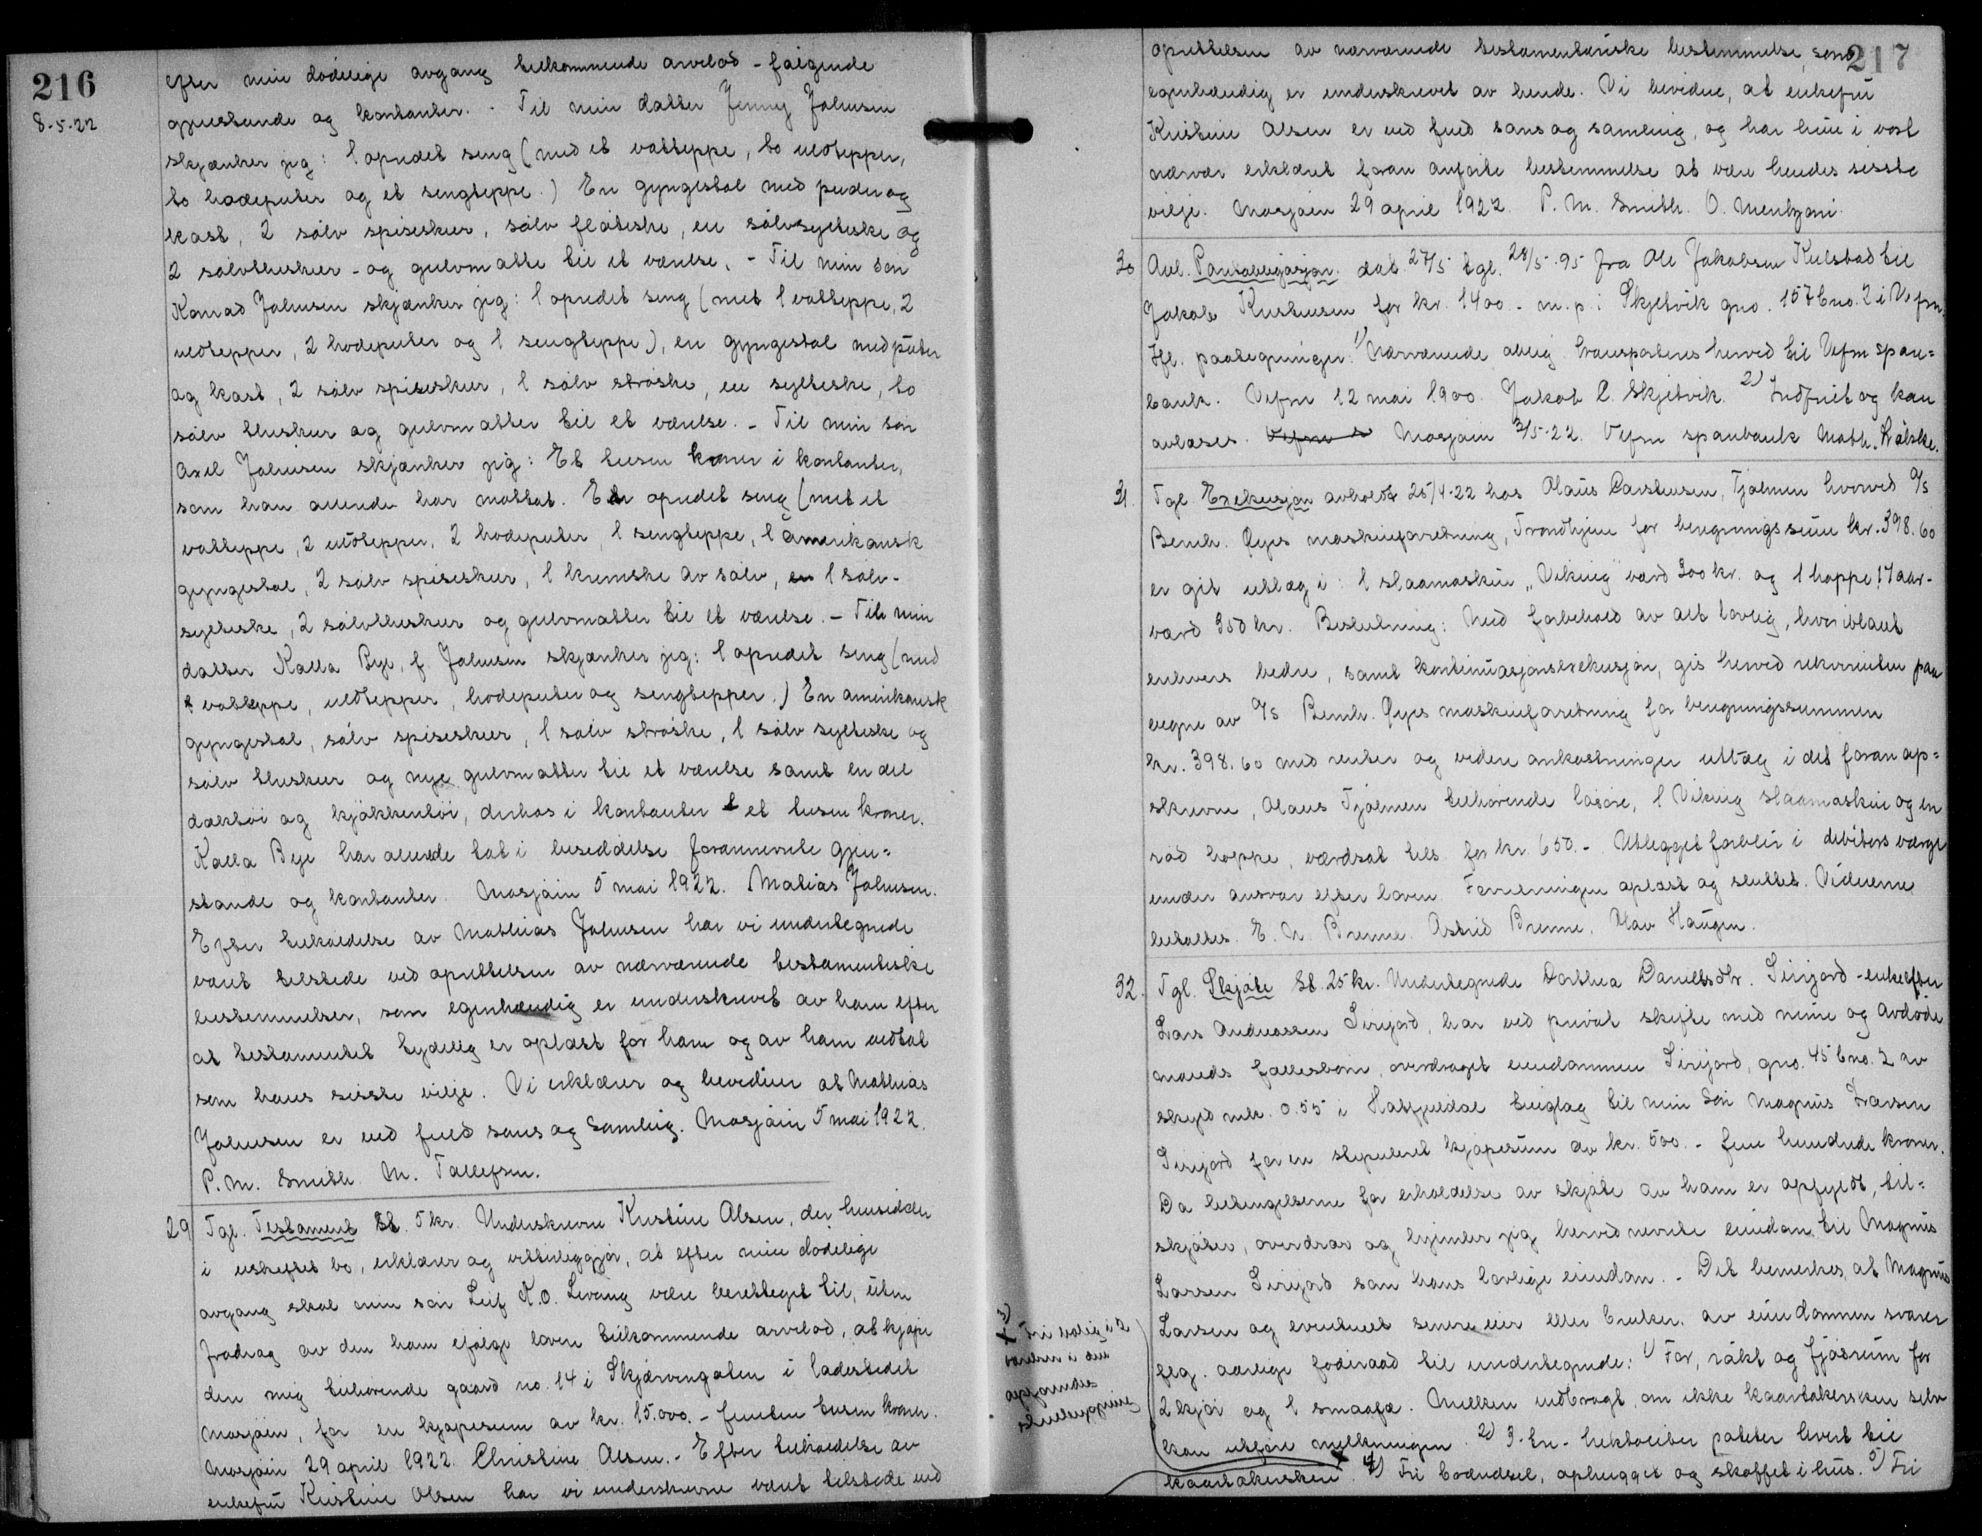 216
8-5-22
efter min dødelige avgang tilkommende arvelod - følgende
gjenstande og kontanter. - Til min datter Jenny Johnsen
skjænker jeg: 1 opredet seng (med et vatteppe, to uldtepper,
to hodeputer og et sengteppe.) En gyngestol med puder og
kast, 2 sølv spiseskeer, sølv fløteske, en sølvsylteske og
2 sølvtheskeer - og gulvmatte til et værelse. - Til min søn
Konrad Johnsen skjænker jeg: 1 opredet seng (med 1 vatteppe, 2
uldtepper, 2 hodeputer og 1 sengteppe), en gyngestol med puter
og kast, 2 sølv spiseskeer, 1 sølv strøske, en sylteske, to
sølv theskeer og gulvmatter til et værelse. - Til min søn
Axel Johnsen skjænker jeg: Et tusen kroner i kontanter,
som han allerede har mottat. En opredet seng (med et
vatteppe, 2 uldtepper, 2 hodeputer, 1 sengteppe, 1 amerikansk
gyngestol, 2 sølv spiseskeer, 1 kremske av sølv, 1 sølv-
sylteske, 2 sølvtheskeer og gulvmatter til et værelse. - Til min
datter Kalla Bye, f. Johnsen skjænker jeg: 1 opredet seng (med
vatteppe, uldtepper, hodeputer og sengtepper.) En amerikansk
gyngestol, sølv spiseskeer, 1 sølv strøske, 1 sølv sylteske og
sølv theskeer og nye gulvmatter til et værelse samt en del
dæktøi og kjøkkentøi, derhos i kontanter et tusen kroner.
Kalla Bye har allerede tat i besiddelse forannevnte gjen=
stande og kontanter. Mosjøin 5 mai 1922. Matias Johnsen.
Efter tilkaldelse av Mathias Johnsen har vi undertegnede
været tilstede ved oprettelsen av nærværende testamentiske
bestemmelser, som egenhændig er underskrevet av ham efter
at testamentet tydelig er oplæst for ham og av ham vedtat
som hans sisste vilje. Vi erklærer og bevidner at Mathias
Johnsen er ved fuld sans og samling. Mosjøin 5 mai 1922.
P. M. Smith M. Tollefsen.
29 Tgl. Testament St. 5 kr. Underskrevne Kristine Olsen, der hensidder
i uskiftet bo, erklærer og vitterliggjør, at efter min dødelige
avgang skal min søn Leif K.O. Living være berettiget til, uten
fradrag av den ham ifølge loven tilkommende arvelod, at kjøpe
den mig tilhørende gaard no. 14 i Skjærvengaten i ladestedet
Mosjøin, for en kjøpesum av kr. 15.000.- femten tusen kroner.
Mosjøin 29 april 1922. Christine Olsen. - Efter tilkaldelse av
enkefru Kristine Olsen har vi underskrevne været tilstede ved
217
oprettelsen av nærværende testamentariske bestemmelse, som
egenhændig er underskrevet av hende. Vi bevidne, at enkefru
Kristine Olsen er ved fuld sans og samling, og har hun i vort
nærvær erklæret foran anførte bestemmelse at være hendes sisste
vilje. Mosjøin 29 april 1922. P. M. Smith. O. Mentzoni.
30 Avl. Pantobligasjon. dat. 27/5 tgl. 28/5.95 fra Ole Jakobsen Kulstad til
Jakob Kristensen for kr. 1400 - m. p. i Skjetvik gno. 157 bno. 2 i Vefsn.
Hf. paategninger: 1) Nærværende oblig. transporteres herved til Vefsn spare=
bank. Vefsn 12 mai 1900. Jakob P. Skjetvik. 2) Indfriet og kan
avlæses. Mosjøin 3/5-22. Vefsn sparebank Math.
31. Tgl. Exekusjon avholdt 25/4-22 hos Olaus Carstensen, Tjølmen hvorved A/S
Bernh. Øyes maskinforretning, Trondhjem for tvungningssum kr. 398.60
er git utlæg i: 1 slaamaskin „Viking" værd 300 kr. og 1 hoppe 17 aar-
værd 350 kr. Beslutning: Med forbehold av alt lovlig, hvoriblant
enhvers bedre, samt kontinuasjonsexekusjon, gis herved rekvirenten paa
vegne av A/S Bernh. Øyes maskinforretning for tvugningssummen
kr. 398.60 med renter og videre omkostninger utlæg i det foran op=
skrevne, Olaus Tjølmen tilhørende løsøre, 1 Viking slaamaskin og en
rød hoppe, værdsat tils. for kr. 650.- Utlegget forblir i debitors værge
under ansvar efter loven. Forretningen oplæst og sluttet. Vidnerne
betaltes. E. N. Brenne. Astrid Brenne. Olav Haugen.
32. Tgl. Skjøte St. 25 kr. Undertegnede Dorthea Danielsdtr. Sirijord - enke efter
Lars Andreassen Sirijord, har ved privat skifte med mine og avdøde
mands fællesbørn, overdraget eiendommen Sirijord, gno. 45 bno. 2 av
skyld mk. 0.55 i Hatfjeldal tinglag til min søn Magnus Larsen
Sirijord for en stipuleret kjøpesum av kr. 500.- fem hundrede kroner.
Da betingelserne for erholdelse av skjøte av ham er opfyldt, til=
skjøter, overdrar og hjemler jeg herved nevnte eiendom til Magnus
Larsen Sirijord som hans lovlige eiendom. - Det bemerkes, at Magnus
Larsen og eventuelt senere eier eller bruker av eiendommen svarer
flg. aarlige føderaad til undertegnede: 1) For, røkt og fjøsrum for
2 kjør og 1 smaafæ. Melken indbragt, om ikke kaartakersken selv
kan utføre melkningen. 2) 3- tre - hektoliter poteter levert til
kaartakersken. X 4) Fri brændsel, ophugget og skaffet i hus. 5) Fri
3)
X Fri bolig i 2
værelser i den
opførendes
stuebygning